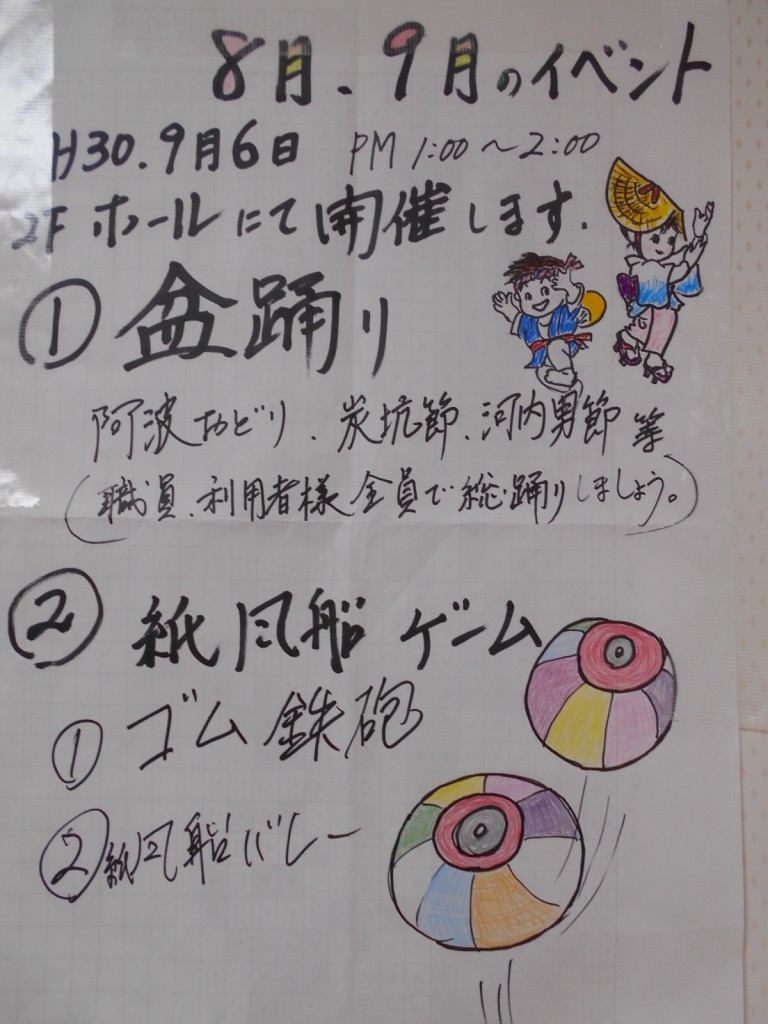 8月、9月のイベント
H30.9月6日 PM 1:00～2:00
2F ホールにて開催します.
① 盆踊り
阿波おどり、炭坑節、河内男節 等
(職員、利用者様全員で総踊りしましょう。)
② 紙風船 ゲーム
① ゴム鉄砲
② 紙風船バレー